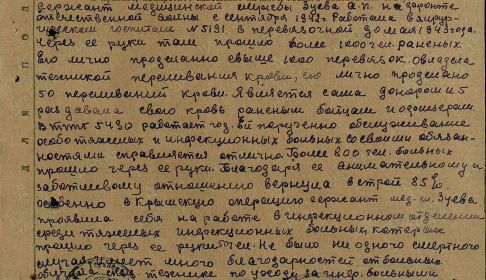 сержант медицинской службы Зуева А.П. на фронте
отечественной войны с сентября 1942г. Работала в хирур-
гическом госпитале №5191 в перевязочной до мая 1943 года
через ее руки там прошло более 1000 чел. раненых.
Ею лично проделанно свыше 1000 перевязок. Овладела
техникой переливания крови, ею лично проделано
50 переливаний крови. Является сама донором и 5
раз давала свою кровь раненым бойцам и офицерам.
В ттпг 5430 работает год. Ей поручено обслуживание
особо тяжелых и инфекционных больных. Со своими обязан-
ностями справляется отлично. Более 800 чел. больных
прошло через ее руки. Благодаря ее внимательному и
заботливому отношению вернула в строй 85%.
Особенно в Крымскую операцию сержант мед. сл. Зуева
проявила себя на работе в инфекционном отделении
среди тяжелых инфекционных больных которые
прошло через ее руки чел. Не было ни одного смертного
случая. Имеет много благодарностей от больных.
технике по уходу за инфек. больными